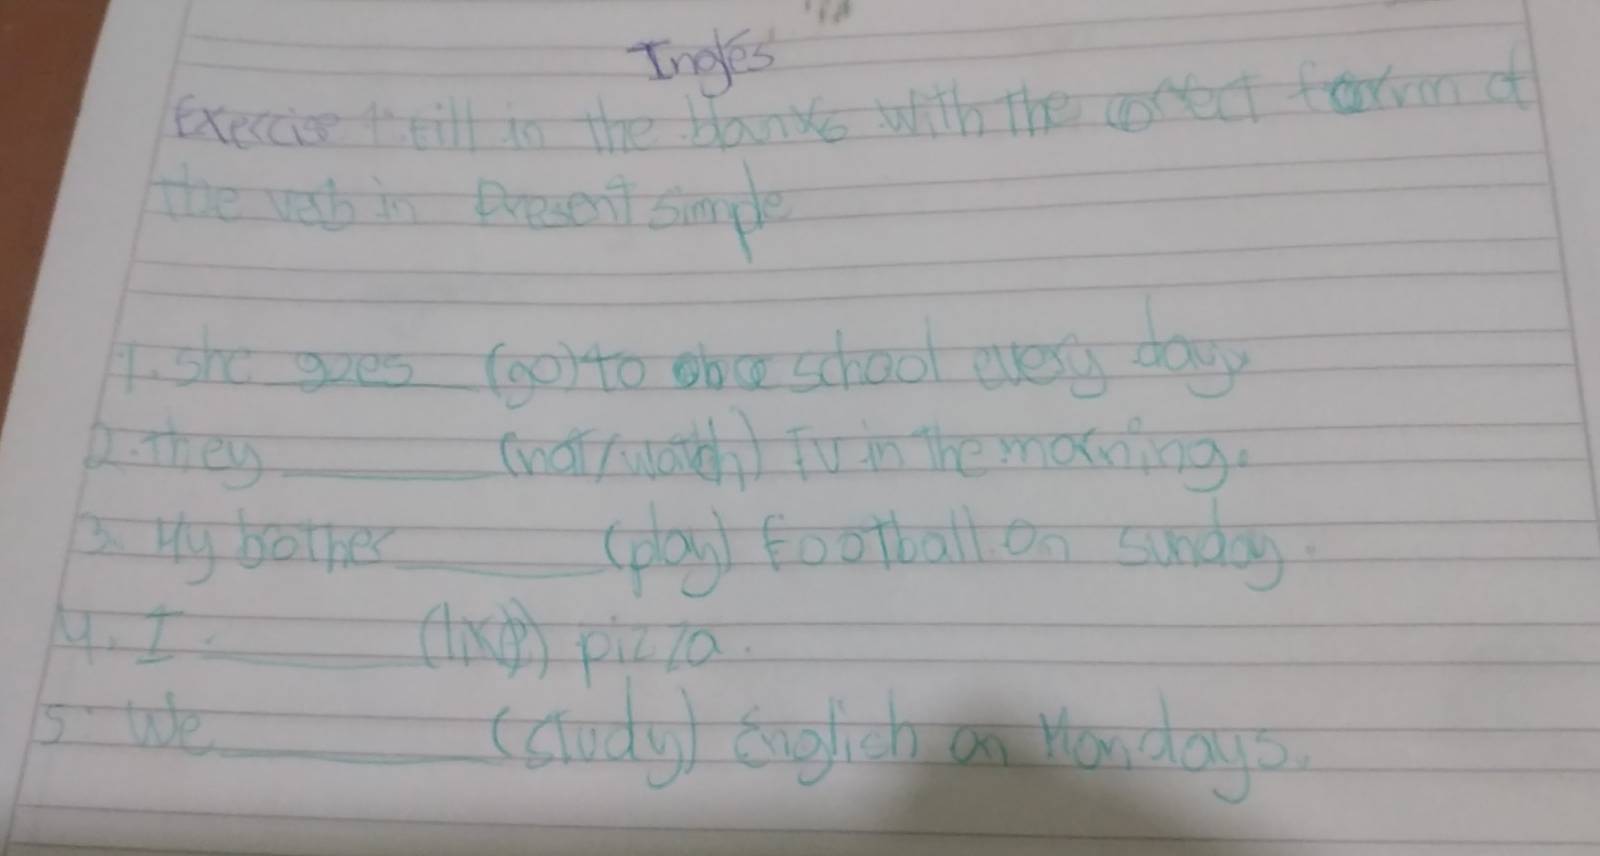 Inglés
Exercise 1 fill in the blanks with the correct form of
the verb in Present simple
1. she goes (go) to school every day.
2. they ______ (not/watch) TV in the morning.
3. My bother ______ (play) football on sunday.
4. I ______ (like) pizza.
5. We ______ (study) English on Mondays.